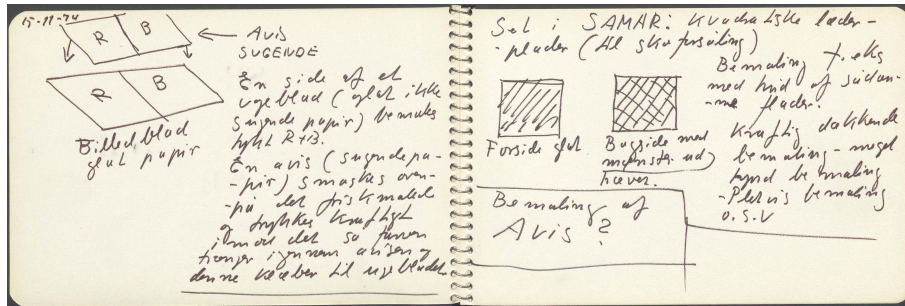 15-11-74
R B
← Avis
SUGENDE
R B
Billedblad
glat papir
En side af et
ugeblad (glat ikke
sugende papir) bemales
tykt R+B.
En avis (sugende pa-
-pir) smaskes oven-
-på det friskmalede
og trykkes kraftigt
imod det så farven
trænger igennem avisen og
denne klæber til ugebladet
Set i SAMAR: Kvadratiske læder-
-plader (til skoforsåling)
Forside glat.
Bagside med
mønster ud
hæver.
Bemaling f. eks
med hvid af sådan-
-ne flader.
Kraftig dækkende
bemaling - meget
tynd bemaling
- Pletvis bemaling
o.s.v
Bemaling af
Avis?